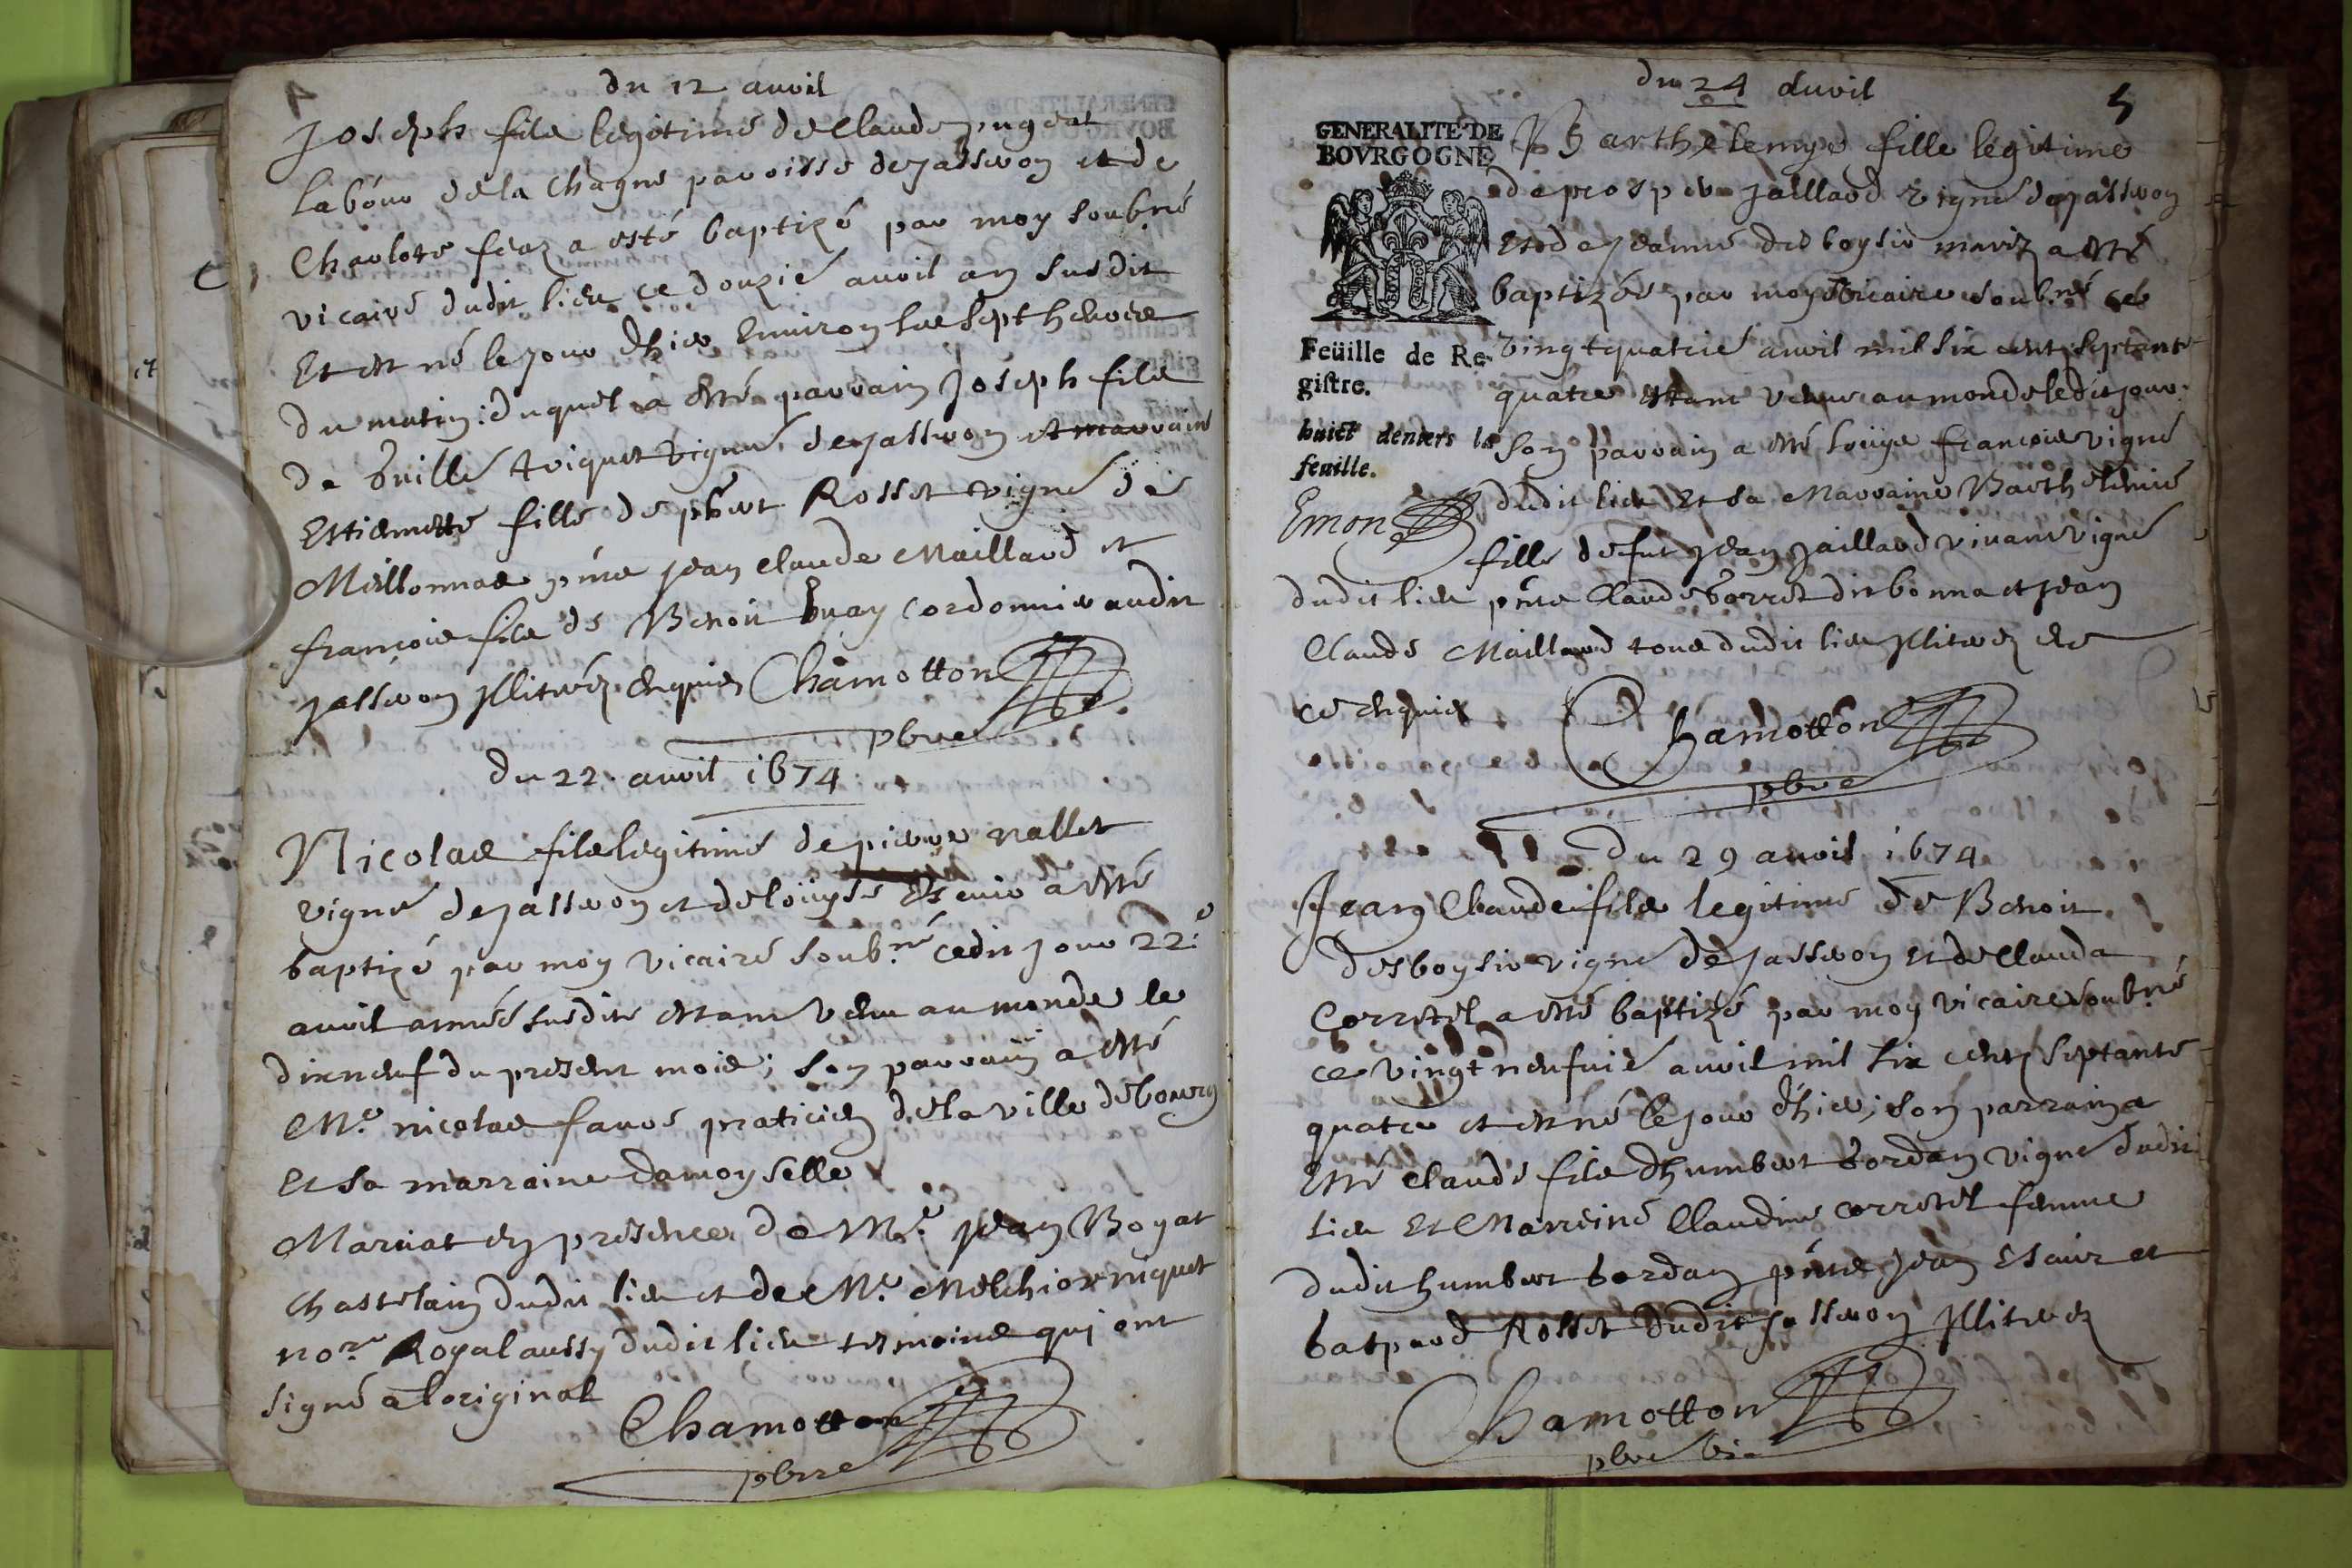 du 12 avril
Joseph filz legitime de Claude pugeat
labour de la Chagne parroisse de Jasseron et de
Charlote feaz a esté baptizé par moy soubné
vicaire dudit lieu ce douzié avril an susdit
Et est né le jour d'hier Environ les sept heures
du matin: duquel a esté parrain Joseph filz
de Guillé triquet vigné de Jasseron et marraine
Estiemette fille de phbert Rosset vigné de
Meillonnas pnts Jean Claude Maillard et
francois filz de Benoit buay Cordonnier audit
Jasseron Illiterez enquis Chamotton
pbre
du 22. avril 1674
Nicolas filz legitime de pierre nallet
vigné de Jasseron et de loüyse Esuir a esté
baptizé par moy vicaire soub.né cedit jour 22.e
avril année susdite estant venu au monde le
dixneuf du present mois; son parrain a esté
M.e nicolas favre praticien de la ville de bourg
Et sa marraine damoyselle
Marriat en presence de M.e Jean Boyat
Chastelain dudit lieu et de M.e Melchior niquet
no.re Royal aussy dudit lieu tesmoins qui ont
signé a loriginal
Chamotton
pbre
du 24 avril
5
GENERALITE DE
BOVRGOGNE
Barthelemye fille legitime
de prosper Jaillard vigné de Jasseron
Et de Jeanne desboysir mariez a esté
baptizée par moy vicaire soubné ce
Feüille de Re-
vingtquatrié avril mil six cent septante
gistre.
quatre estant venue au monde ledit jour.
huict deniers la
son parrain a esté loüys francois vigné
feuille.
dudit lieu Et sa Marraine Barthelemie
Emon
fille de fut Jean Jaillard vivant vigné
dudit lieu pnts Claude borret dit bonna et Jean
Claude Maillard tous dudit lieu Illiterez de
ce enquis
Chamotton
pbre
du 29 avril 1674
Jean Claude filz legitime de Benoit
desboysir vigné de Jasseron Et de Clauda
Corretel a esté baptizé par moy vicaire soubné
ce vingt neufvié avril mil six cents septante
quatre et est né le jour d'hier; son parrain a
Esté Claude filz d'humbert bordan vigné dudit
lieu Et Marreine Claudine corretel femme
dudit humbert bordan pnts Jean Esuir et
Rosset dudit Jasseron Illiterez
Chamotton
pbre vic